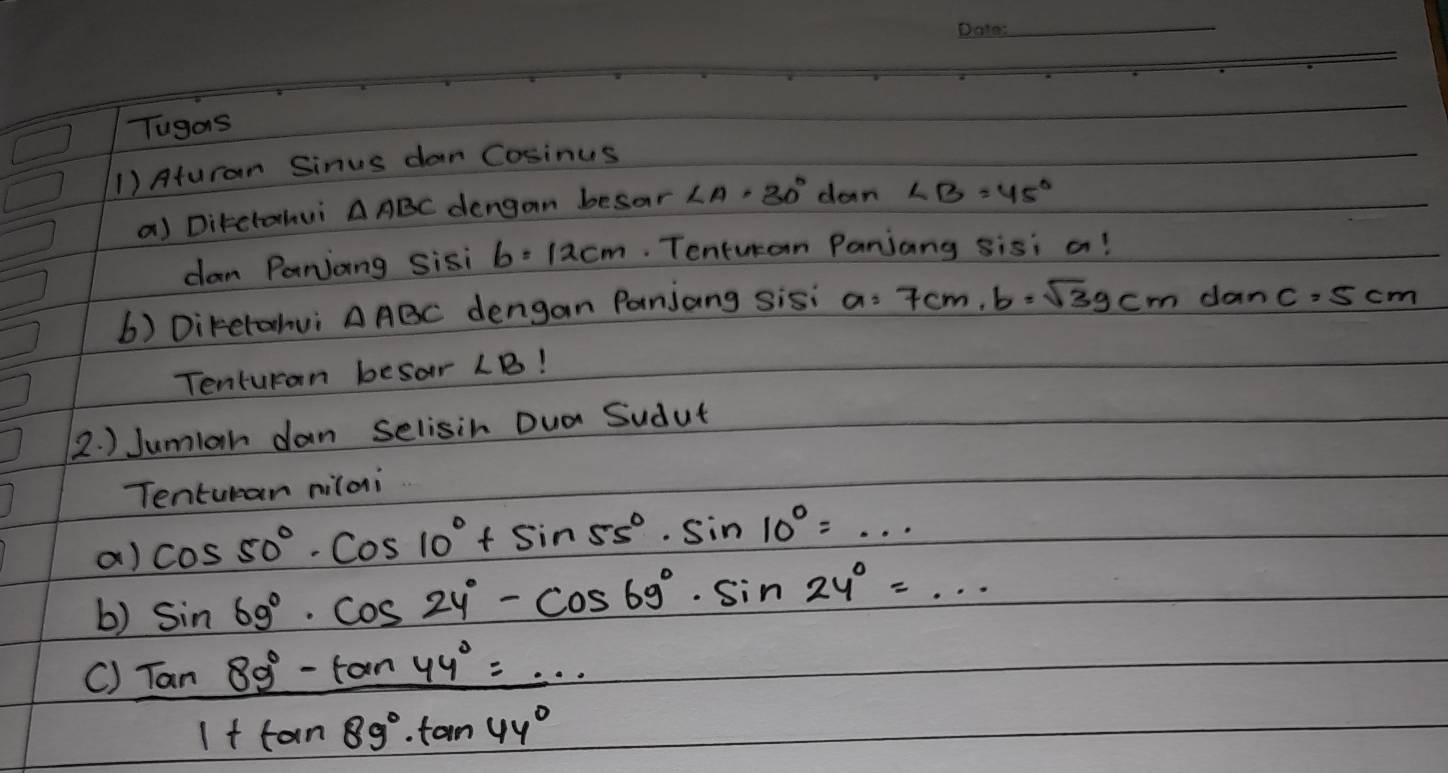 Date:
Tugas
1) Aturan Sinus dan Cosinus
a) Diketahui △ ABC dengan besar ∠A = 30° dan ∠B = 45°
dan Panjang sisi b = 12cm. Tentukan Panjang sisi a!
b) Diketahui △ ABC dengan Panjang sisi a = 7cm, b = √39 cm dan c = 5 cm
Tentukan besar ∠B!
2.) Jumlah dan Selisih Dua Sudut
Tentukan nilai
a) cos 50° . Cos 10° + Sin 55° . Sin 10° = ...
b) Sin 69° . Cos 24° - Cos 69° . Sin 24° = ...
C) Tan 89° - tan 44° = ...
1 + tan 89° . tan 44°